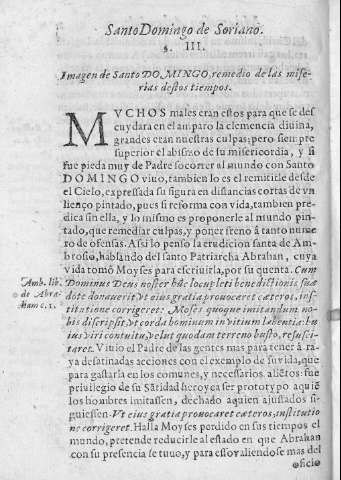 Santo Domingo de Soriano.
§. III.
Imagen de Santo DOMINGO, remedio de las mise-
rias destos tiempos.
MVCHOS males eran estos para que se des
cuydara en el amparo la clemencia diuina,
grandes eran nuestras culpas; pero siempre
superior el abismo de su misericordia, y si
fue pieda muy de Padre socorrer al mundo con Santo
DOMINGO viuo, tambien lo es el remitirle desde
el Cielo, expressada su figura en distancias cortas de vn
lienço pintado, pues si reforma con vida, tambien pre-
dica sin ella, y lo mismo es proponerle al mundo pin-
tado, que remediar culpas, y poner freno à tanto nume
ro de ofensas. Assi lo penso la erudicion santa de Am-
brosio, hablando del santo Patriarcha Abrahan, cuya
vida tomò Moyses para escriuirla, por su quenta. Cum
Amb. lib.
o de Abra-
ham c. 1.
Dominus Deus noster hac locupleti benedictionis sua
dote donauerit, vt eius gratia prouocaret cæteros, ins-
titutione corrigeret: Moses quoque imitandum no-
bis discripsit, vt corda hominum in vitium labentia: hu
ius viri contuitu, velut quodam terreno busto, resusci-
taret. Viuio el Padre de las gentes mas para tener à ra-
ya desatinadas acciones con el exemplo de su vida, que
para gastarla en los comunes, y necessarios alietos: fue
priuilegio de su sãtidad heroyca ser prototypo aquiẽ
los hombres imitassen, dechado aquien ajustados si-
guiessen. Vt eius gratia prouocaret cæteros, institutio
ne corrigeret. Halla Moyses perdido en sus tiempos el
mundo, pretende reducirle al estado en que Abrahan
con su presencia se tuuo, y para esso valiendose mas del
oficio